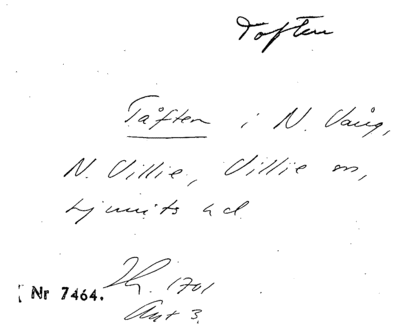 Toften
Tåften i N. Vång,
N. Villie, Villie sn,
Ljunits hd
Nr 7464. 1701
Akt 3.